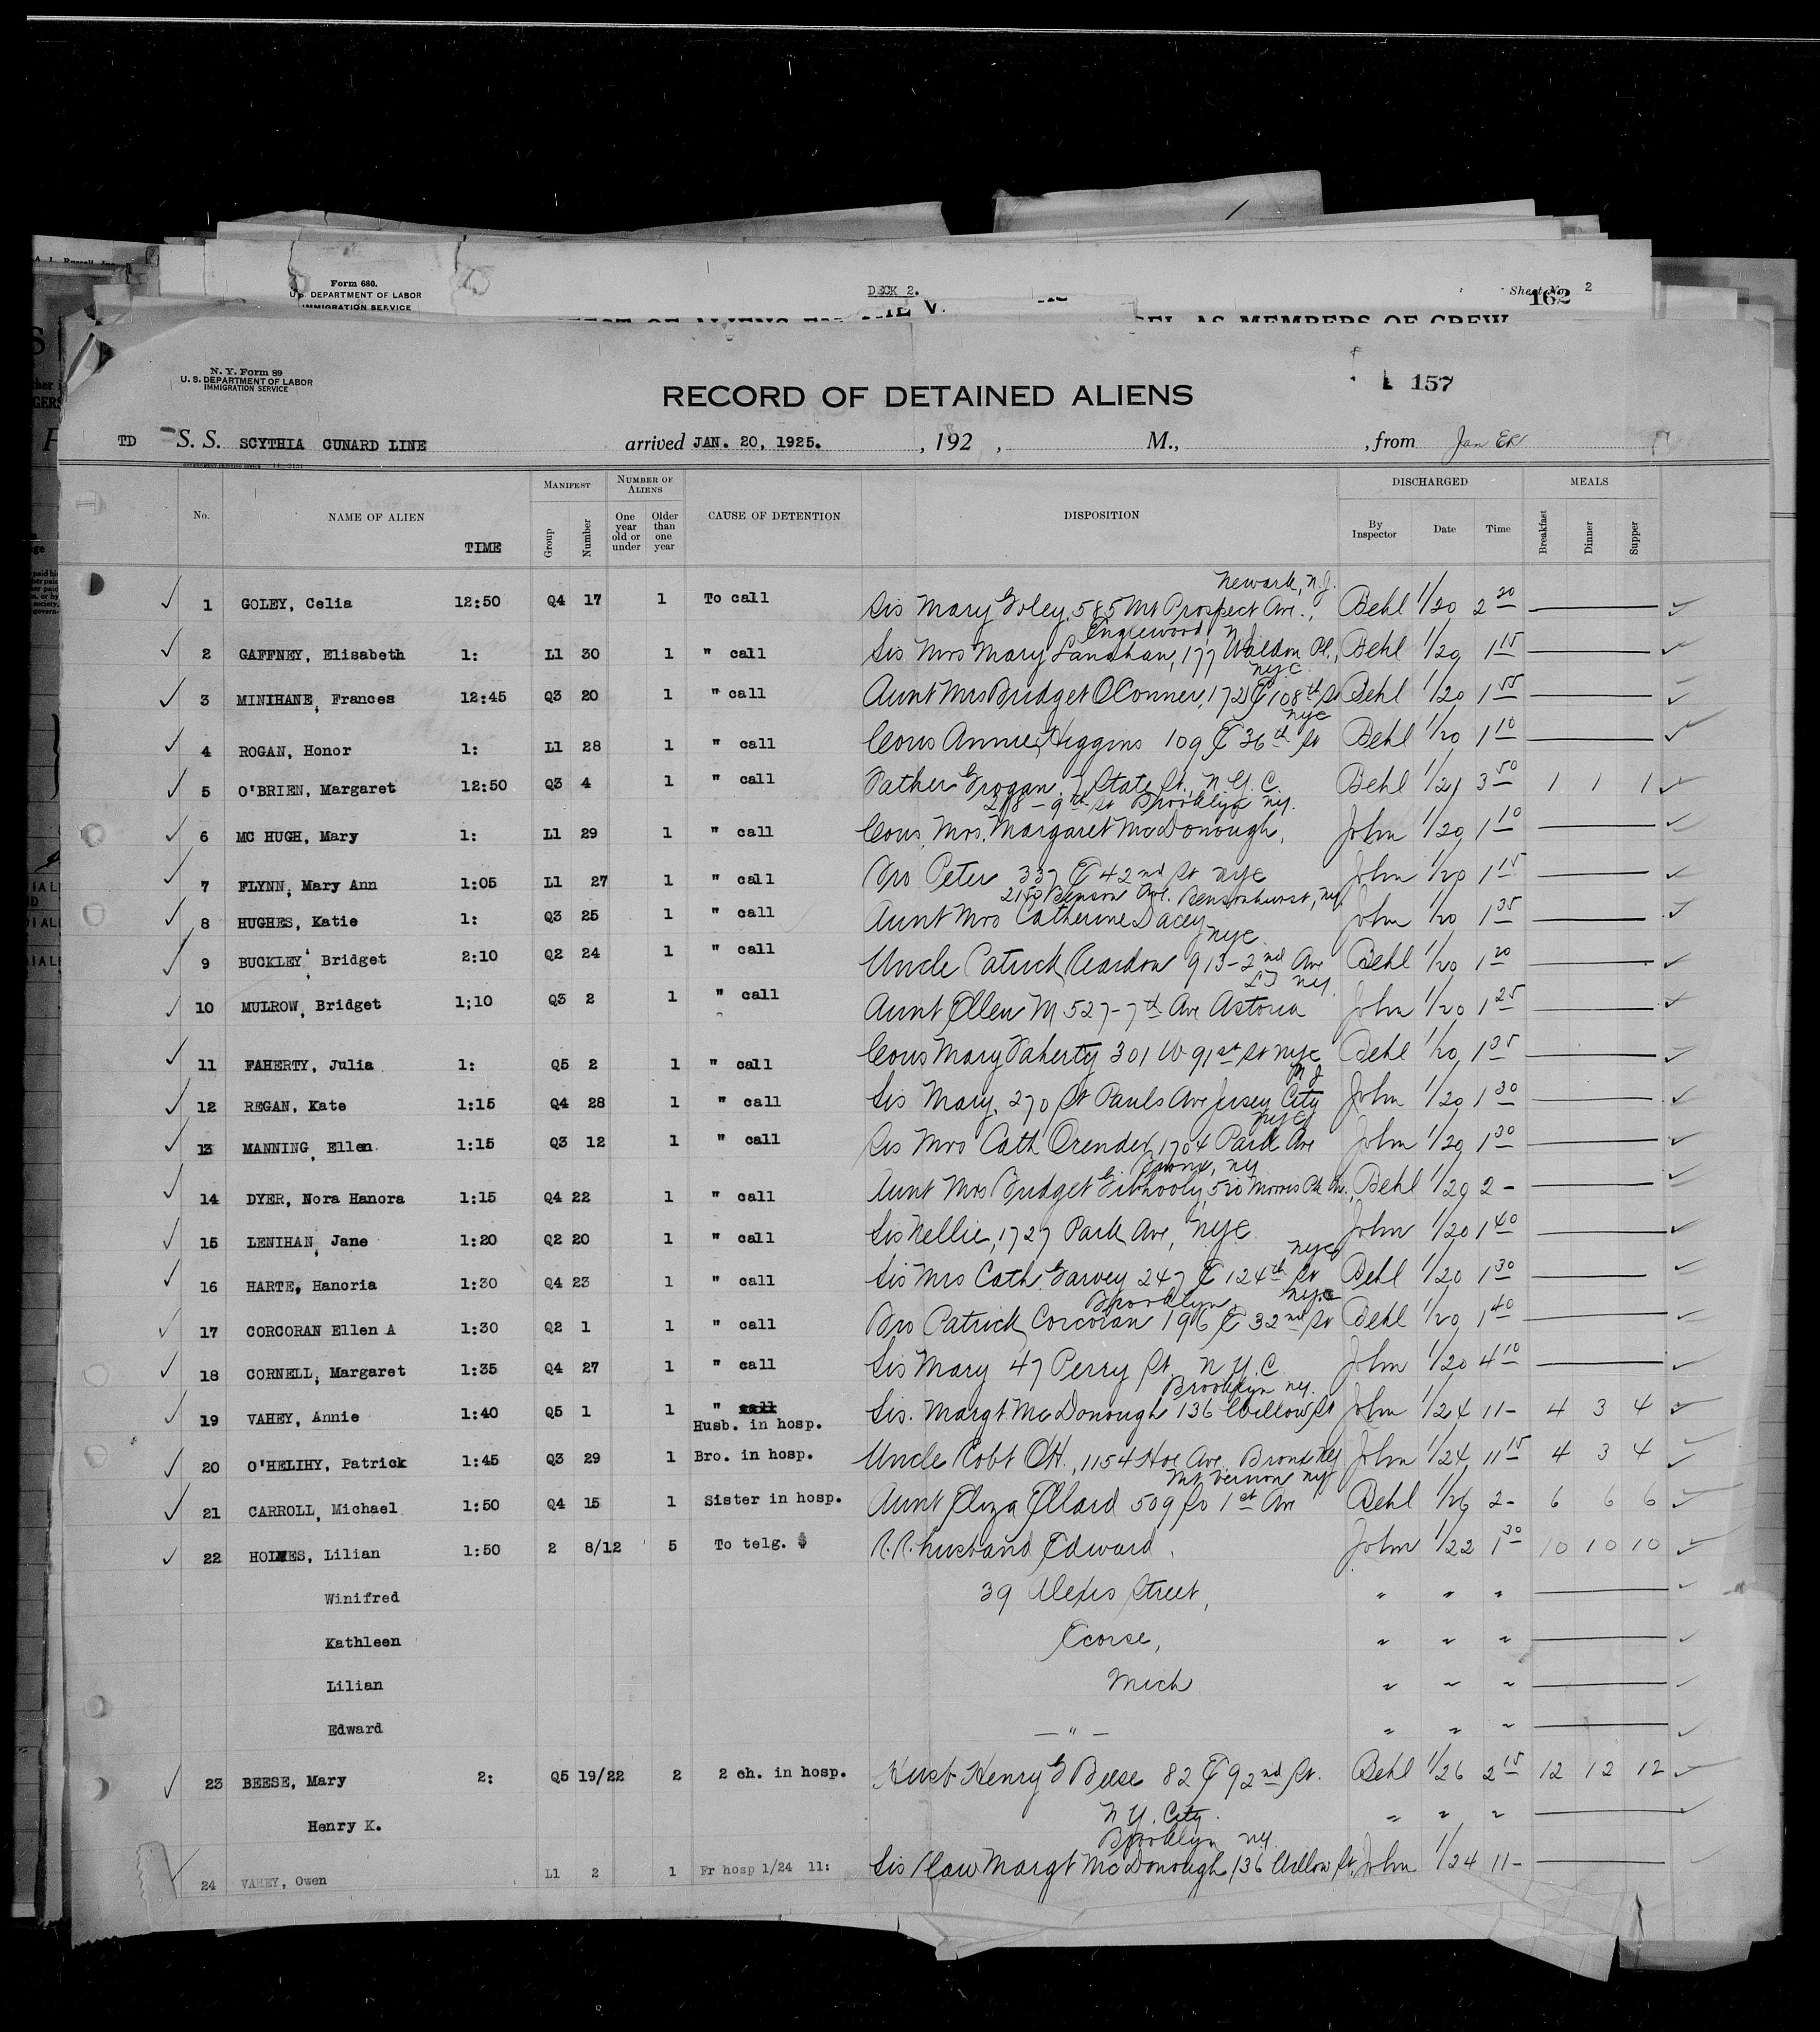 Form 680.
U.S. DEPARTMENT OF LABOR
IMMIGRATION SERVICE
DECK 2.
Sheet No. 2
162
AS MEMBERS OF CREW
N. Y. Form 89
U. S. DEPARTMENT OF LABOR
IMMIGRATION SERVICE
RECORD OF DETAINED ALIENS
157
TD S. S. SCYTHIA CUNARD LINE arrived JAN. 20, 1925. , 192 , M., , from
No. NAME OF ALIEN TIME MANIFEST Group Number NUMBER OF ALIENS One year old or under Older than one year CAUSE OF DETENTION DISPOSITION DISCHARGED By Inspector Date Time MEALS Breakfast Dinner Supper
Newark, N.J.
1 GOLEY, Celia 12:50 Q4 17 1 To call Sis Mary Foley, 585 Mt Prospect Ave., Behl 1/20 2 20
Englewood, N J
2 GAFFNEY, Elisabeth 1: L1 30 1 " call Sis Mrs Mary Lanahan, 177 Waldon Pl., Behl 1/20 1 15
NYC
3 MINIHANE, Frances 12:45 Q3 20 1 " call Aunt Mrs Bridget OConner, 172 E 108th St Behl 1/20 1 55
NYC
4 ROGAN, Honor 1: L1 28 1 " call Cous Annie Higgins 109 E 36th St Behl 1/20 1 10
5 O'BRIEN, Margaret 12:50 Q3 4 1 " call Father Grogan, 7 State St., N.Y.C. Behl 1/21 3 50 1 1 1
218 - 9th St Brooklyn NY.
6 MC HUGH, Mary 1: L1 29 1 " call Cous, Mrs. Margaret McDonough, John 1/20 1 10
7 FLYNN, Mary Ann 1:05 L1 27 1 " call Bro Peter 337 E 42nd St NYC John 1/20 1 15
2150 Benson Ave. Bensonhurst, NY
8 HUGHES, Katie 1: Q3 25 1 " call Aunt Mrs Catherine Dacey John 1/20 1 35
NYC
9 BUCKLEY, Bridget 2:10 Q2 24 1 " call Uncle Patrick Reardon 913 - 2nd Ave Behl 1/20 1 20
LI NY.
10 MULROW, Bridget 1;10 Q3 2 1 " call Aunt Ellen M 527-7th Ave Astoria John 1/20 1 25
11 FAHERTY, Julia 1: Q5 2 1 " call Cous Mary Faherty 301 W 91st St NYC Behl 1/20 1 35
N J
12 REGAN, Kate 1:15 Q4 28 1 " call Sis Mary, 270 St Pauls Ave Jersey City John 1/20 1 30
NYC
13 MANNING, Ellen 1:15 Q3 12 1 " call Sis Mrs Cath Orender, 1704 Park Ave John 1/20 1 30
Bronx, NY
14 DYER, Nora Hanora 1:15 Q4 22 1 " call Aunt Mrs Bridget Gibhooly, 520 Morris Pk Ave., Behl 1/20 2 -
15 LENIHAN, Jane 1:20 Q2 20 1 " call Sis Nellie, 1727 Park Ave, NYC John 1/20 1 40
NYC
16 HARTE, Hanoria 1:30 Q4 23 1 " call Sis Mrs Cath. Garvey 247 E 124th St Behl 1/20 1 30
Brooklyn, NY
17 CORCORAN Ellen A 1:30 Q2 1 1 " call Bro Patrick Corcoran 196 E 32nd St Behl 1/20 1 40
18 CORNELL, Margaret 1:35 Q4 27 1 " call Sis Mary 47 Perry St. N.Y.C. John 1/20 4 10
Brooklyn NY.
19 VAHEY, Annie 1:40 Q5 1 1 " call Sis. Margt McDonough 136 Willow St John 1/24 11- 4 3 4
Husb. in hosp.
20 O'HELIHY, Patrick 1:45 Q3 29 1 Bro. in hosp. Uncle Robt OH., 1154 Hoe Ave. Bronx NY John 1/24 11 15 4 3 4
Mt Vernon NY
21 CARROLL, Michael 1:50 Q4 15 1 Sister in hosp. Aunt Eliza Ellard 509 So 1st Ave Behl 1/26 2- 6 6 6
22 HOLMES, Lilian 1:50 2 8/12 5 To telg. $ R.R. husband Edward, John 1/22 1 30 10 10 10
Winifred 39 Alexis Street, " " "
Kathleen Ecorse, " " "
Lilian Mich " " "
Edward - " - " " "
23 BEESE, Mary 2: Q5 19/22 2 2 ch. in hosp. Husb Henry G Beese 82 E 92nd St. Behl 1/26 2 15 12 12 12
Henry K. N.Y. City. " " "
Brooklyn NY.
24 VAHEY, Owen L1 2 1 Fr hosp 1/24 11: Sis/law Margt McDonough, 136 Willow St, John 1/24 11-